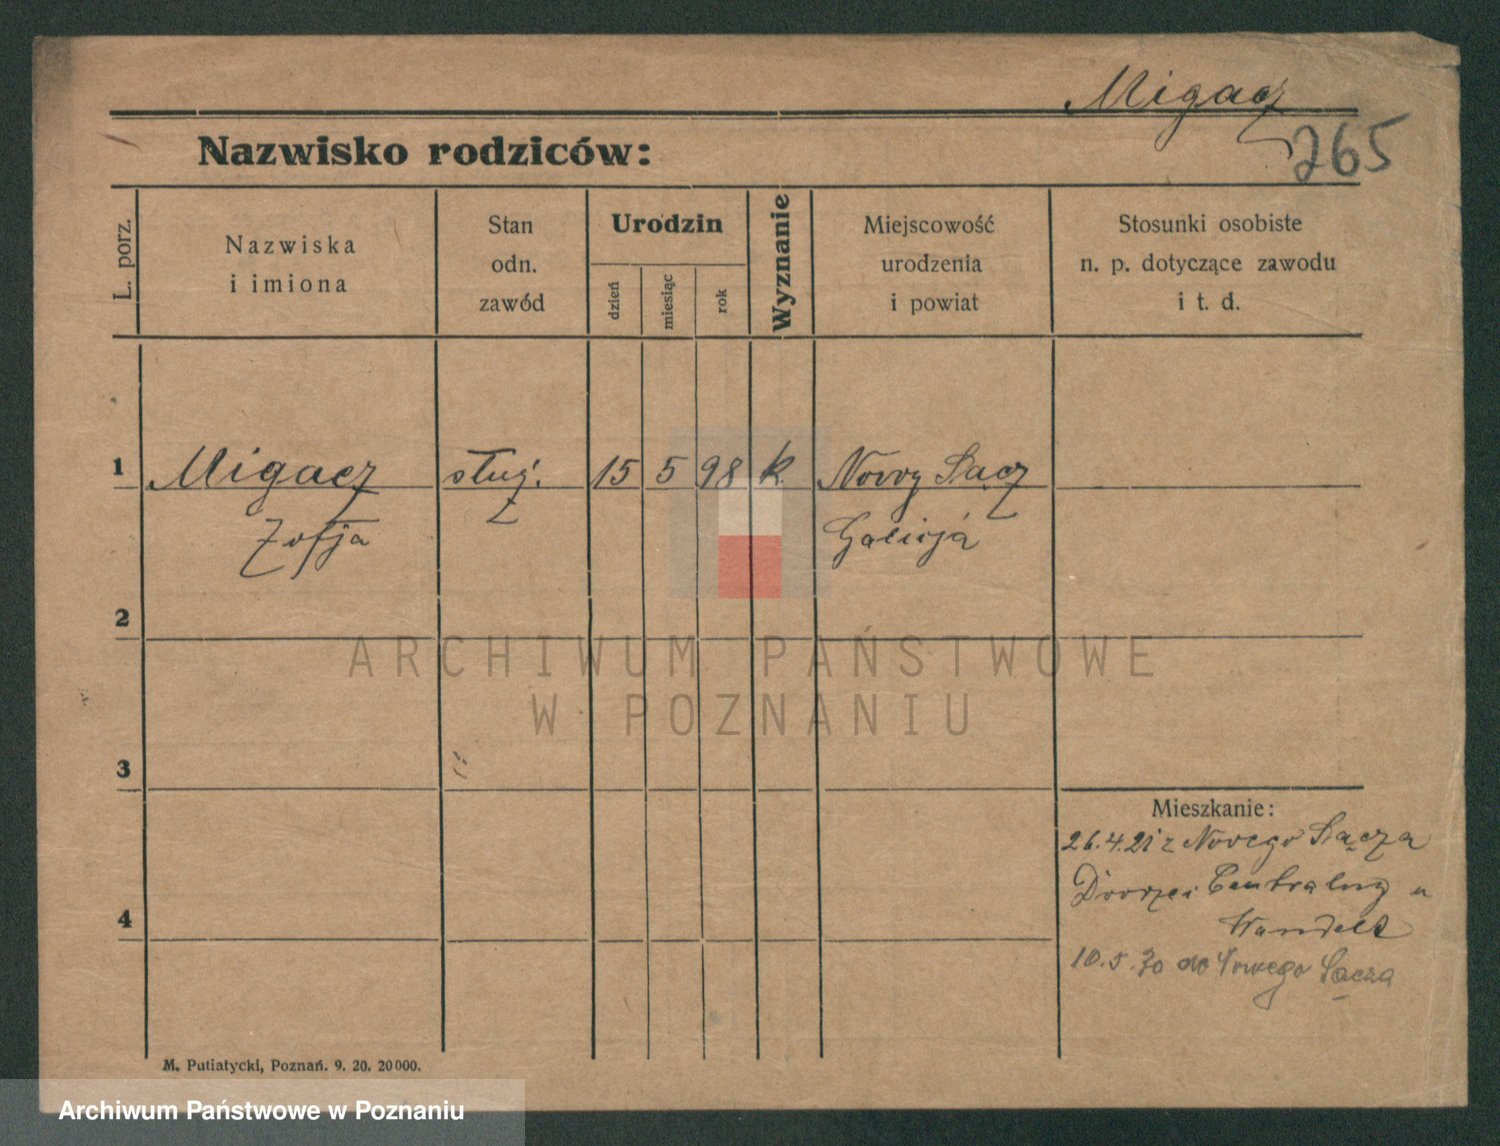 Migacz
265
Nazwisko rodziców:
L. porz.
Nazwiska
i imiona
Stan
odn.
zawód
Urodzin
dzień
miesiąc
rok
Wyznanie
Miejscowość
urodzenia
i powiat
Stosunki osobiste
n. p. dotyczące zawodu
i t. d.
1 Migacz służ. 15 5 98 k. Nowy Sącz
Zofja Galicja
2
ARCHIWUM PAŃSTWOWE
W POZNANIU
3
Mieszkanie:
26.4.21 z Nowego Sącza
Centralny u
4
10.5.30 do Nowego Sącza
M. Putiatycki, Poznań. 9. 20. 20000.
Archiwum Państwowe w Poznaniu